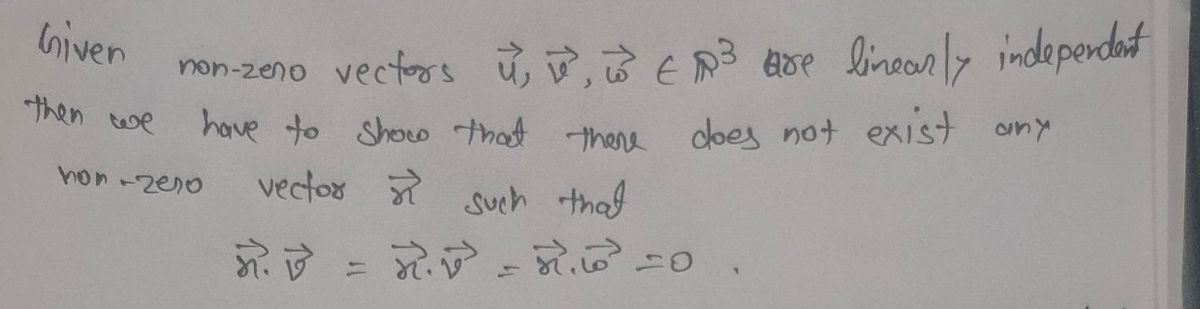 Given non-zero vectors u⃗, v⃗, w⃗ ∈ ℝ³ are linearly independent
then we have to show that there does not exist any
non-zero vector x⃗ such that
x⃗. v⃗ = x⃗. v⃗ = x⃗. w⃗ = 0 .